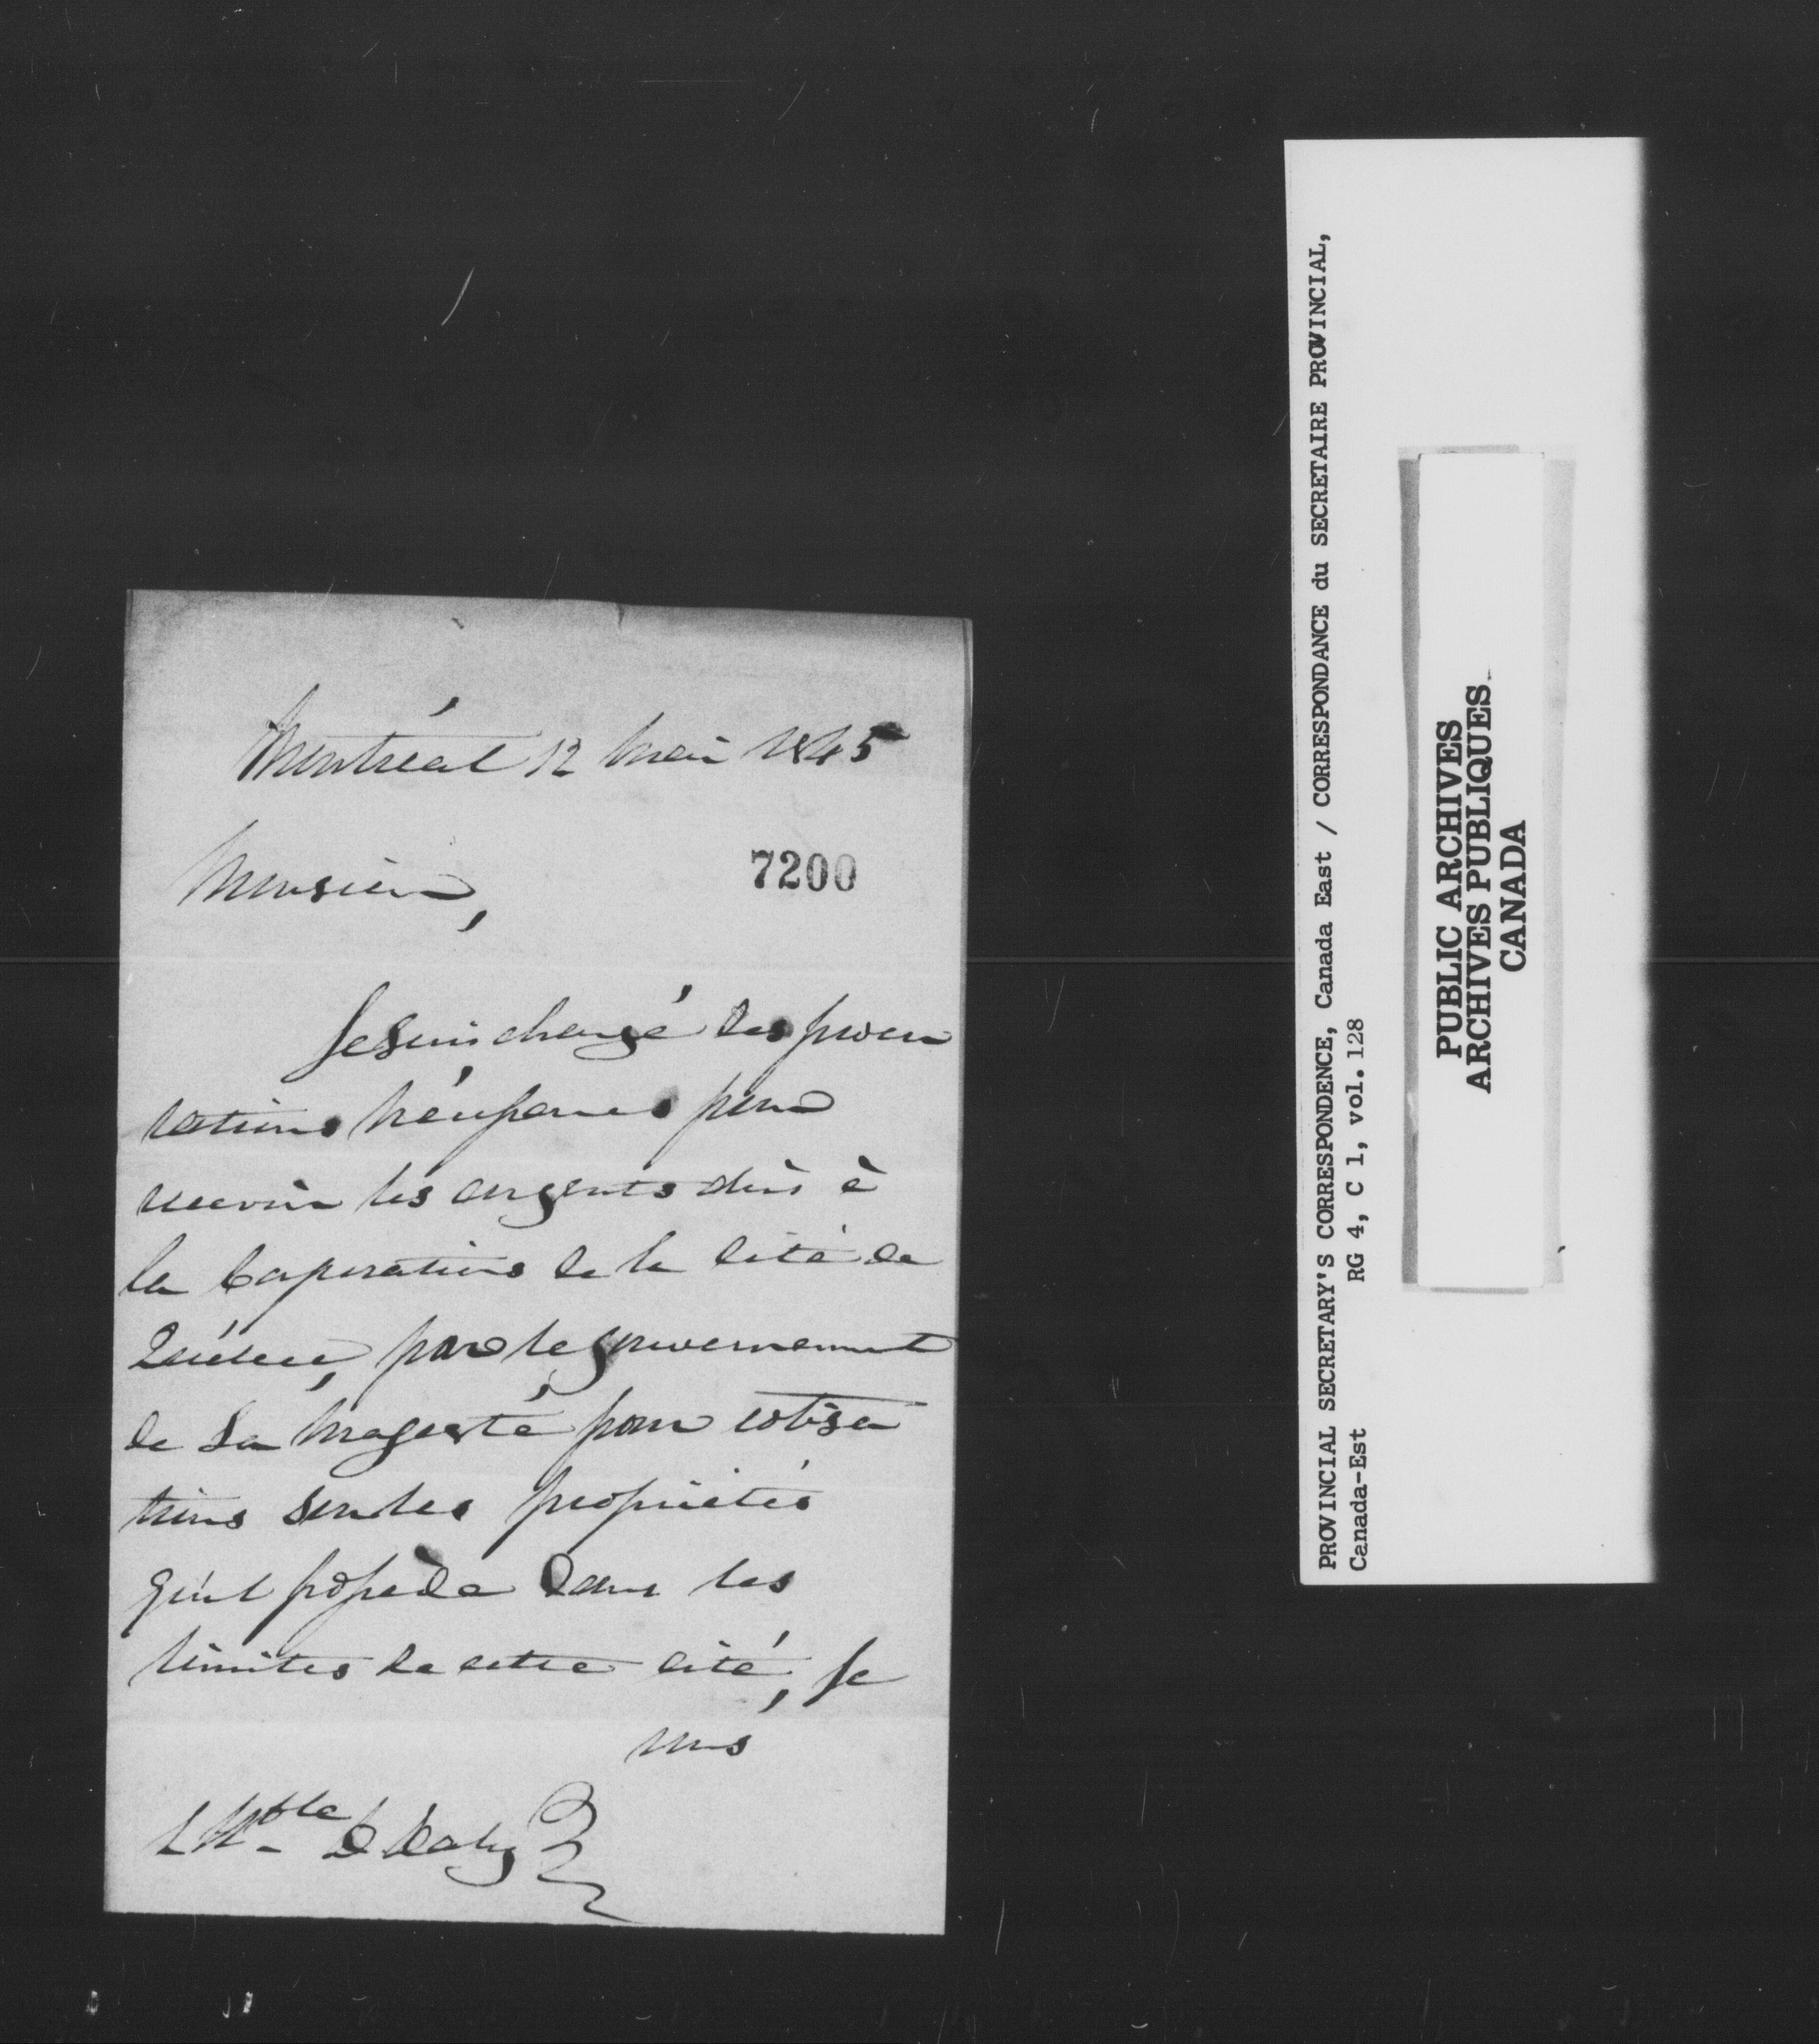 Montréal 12 Mai 1845
Monsieur,
7200
Je suis chargé des procu
rations pour
recevoir les argents dûs à
la Corporation de la Cité de
Québec, par le gouvernement
de Sa Magesté pour cotisa
tions sur les propriétés
qu'il possède dans les
limites de cette cité, Je
L'Hble D Daly
PROVINCIAL SECRETARY'S CORRESPONDENCE, Canada East / CORRESPONDANCE du SECRETAIRE PROVINCIAL,
Canada-Est RG 4, C 1, vol. 128
PUBLIC ARCHIVES
ARCHIVES PUBLIQUES
CANADA